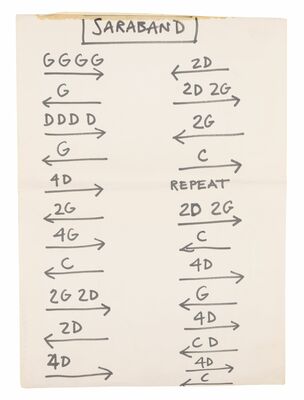 SARABAND
GGGG
G
DDDD
G
4D
2G
4G
C
2G 2D
2D
4D
2D
2D 2G
2G
C
REPEAT
2D 2G
C
4D
G
4D
C D
4D
C